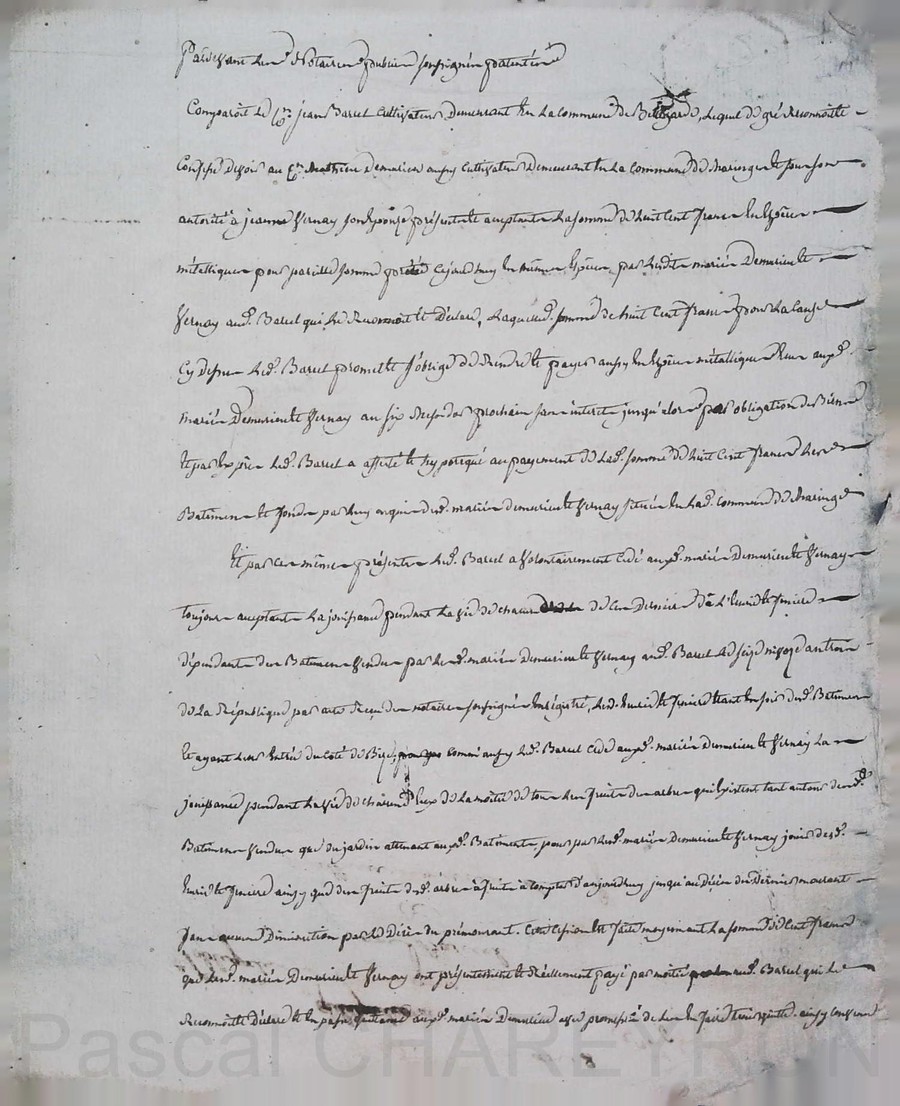 Pardevant les Notaires publics soussignés patentés
Comparoit le Cen jean Barcel Cultivateur Demeurant en La commune de Bellegarde, Lequel de gré Reconnoit et
Confesse Devoir au Cen Demurieu aussy Cultivateur Demeurant en La commune de Maringe et sous son
autorité à jeanne Vernay son Epouse présents et acceptants La somme de huit Cent francs En Espèces
métalliques pour pareille somme cejourdhuy En mêmes Espèces par Lesdits mariés Demurieu et
Vernay aud. Barcel qui Le Reconnoit et Déclare, Laquelle somme de huit Cent francs pour La cause
Cy dessus Led. Barcel promet et s'oblige de Rendre et payer aussy En Espèces métalliques auxd.
mariés Demurieu et Vernay au six prochain sans interets jusqu'alors par obligation de Biens
Et par Exprès Led. Barcel a affecté et hypotequé au payement de Lad. somme de huit Cent francs Les
Batiments et fonds par Luy acquis desd. mariés demurieu et Vernay situés En Lad. Commune de Maringe
Et par ces mêmes présentes Led. Barcel a Volontairement Cédé auxd. mariés Demurieu et Vernay
toujours acceptants La jouissance pendant La vie de chacun de ces Derniers de L'Ecurie et feniere
dépendante des Batiments Vendus par Lesd. mariés Demurieu et Vernay aud. Barcel Le seize nivoze an trois
de La République par acte Reçu des notaires soussignés Enregistré, Lesd. Ecurie et feniere Etant En soir desd. Batiments
et ayant Leurs Entrée du coté de Bize, Comme aussy Led. Barcel Cede auxd. mariés Demurieu et Vernay La
jouissance pendant La vie de chacun d'Eux de La moitié de tous Les fruits des arbres qui Existent tant autour desd.
Batiments Vendus que du jardin attenant auxd. Batiments, pour par Lesd. mariés Demurieu et Vernay jouir desd.
Ecurie et feniere ainsy que des fruits desd. arbres à fruits à compter d'aujourdhuy jusqu'au Décès du Dernier mourant
sans aucune Diminution par Le Décès du prémourant. Cette Cession Est faite moyennant La somme de Cent francs
que Lesd. mariés Demurieu et Vernay ont présentement et Réellement payé par moitié aud. Barcel qui Le
Reconnoit et Déclare et En passe quittance auxd. mariés Demurieu avec promesse de Les En faire tenir quittes. ainsy convenu
Pascal CHAREYRON